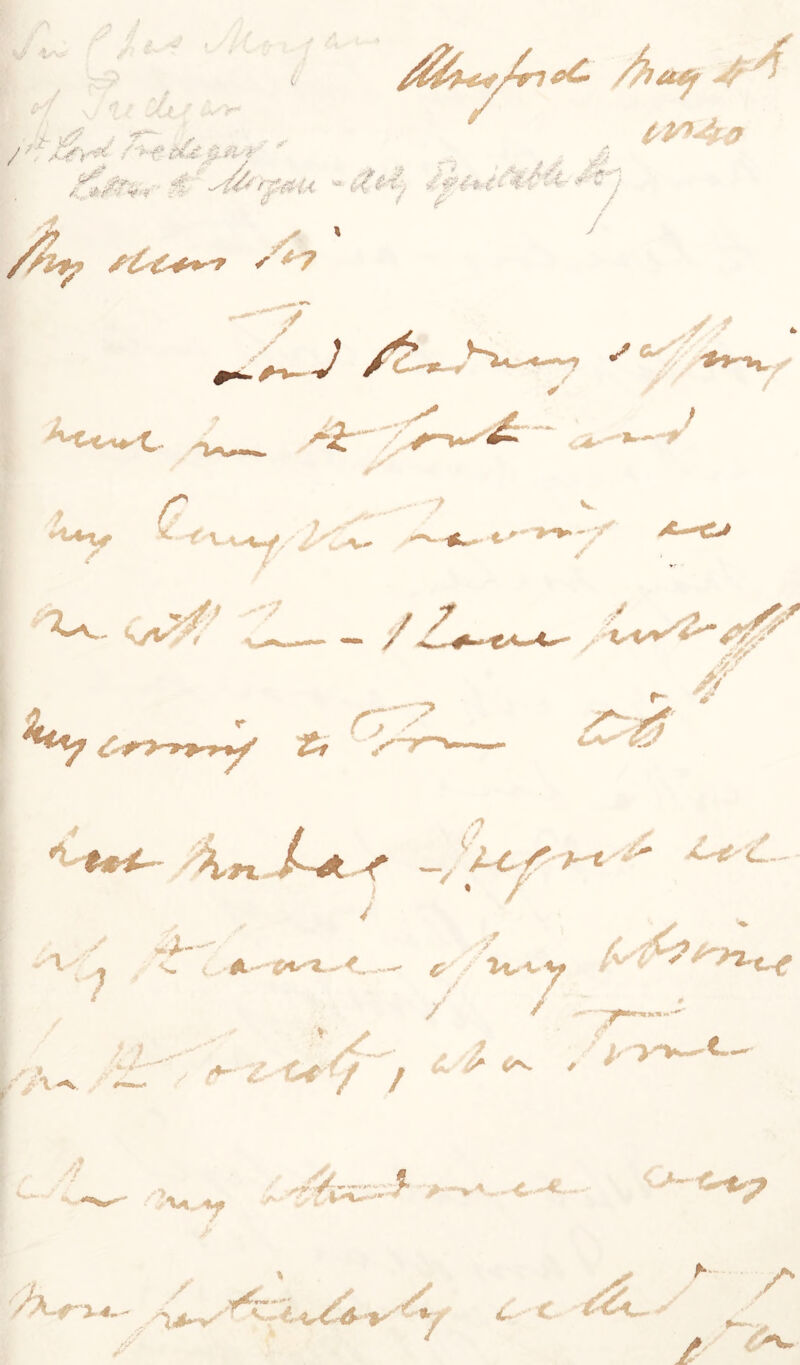 Sir Chas Morgan
of Tredegar
1st Lord Tredegar
Letter to Morgan - Acty Equitable Socy
Alresford May 4th
1840
My dear Sir
Lord Rodney suffering
much from the Gout and
my Daughter having no
one with him - I have put off
my coming to Town till
next Monday - I regret not
only the cause of my absence
from the Society, at a Time
when my attendance was
more particularly called for